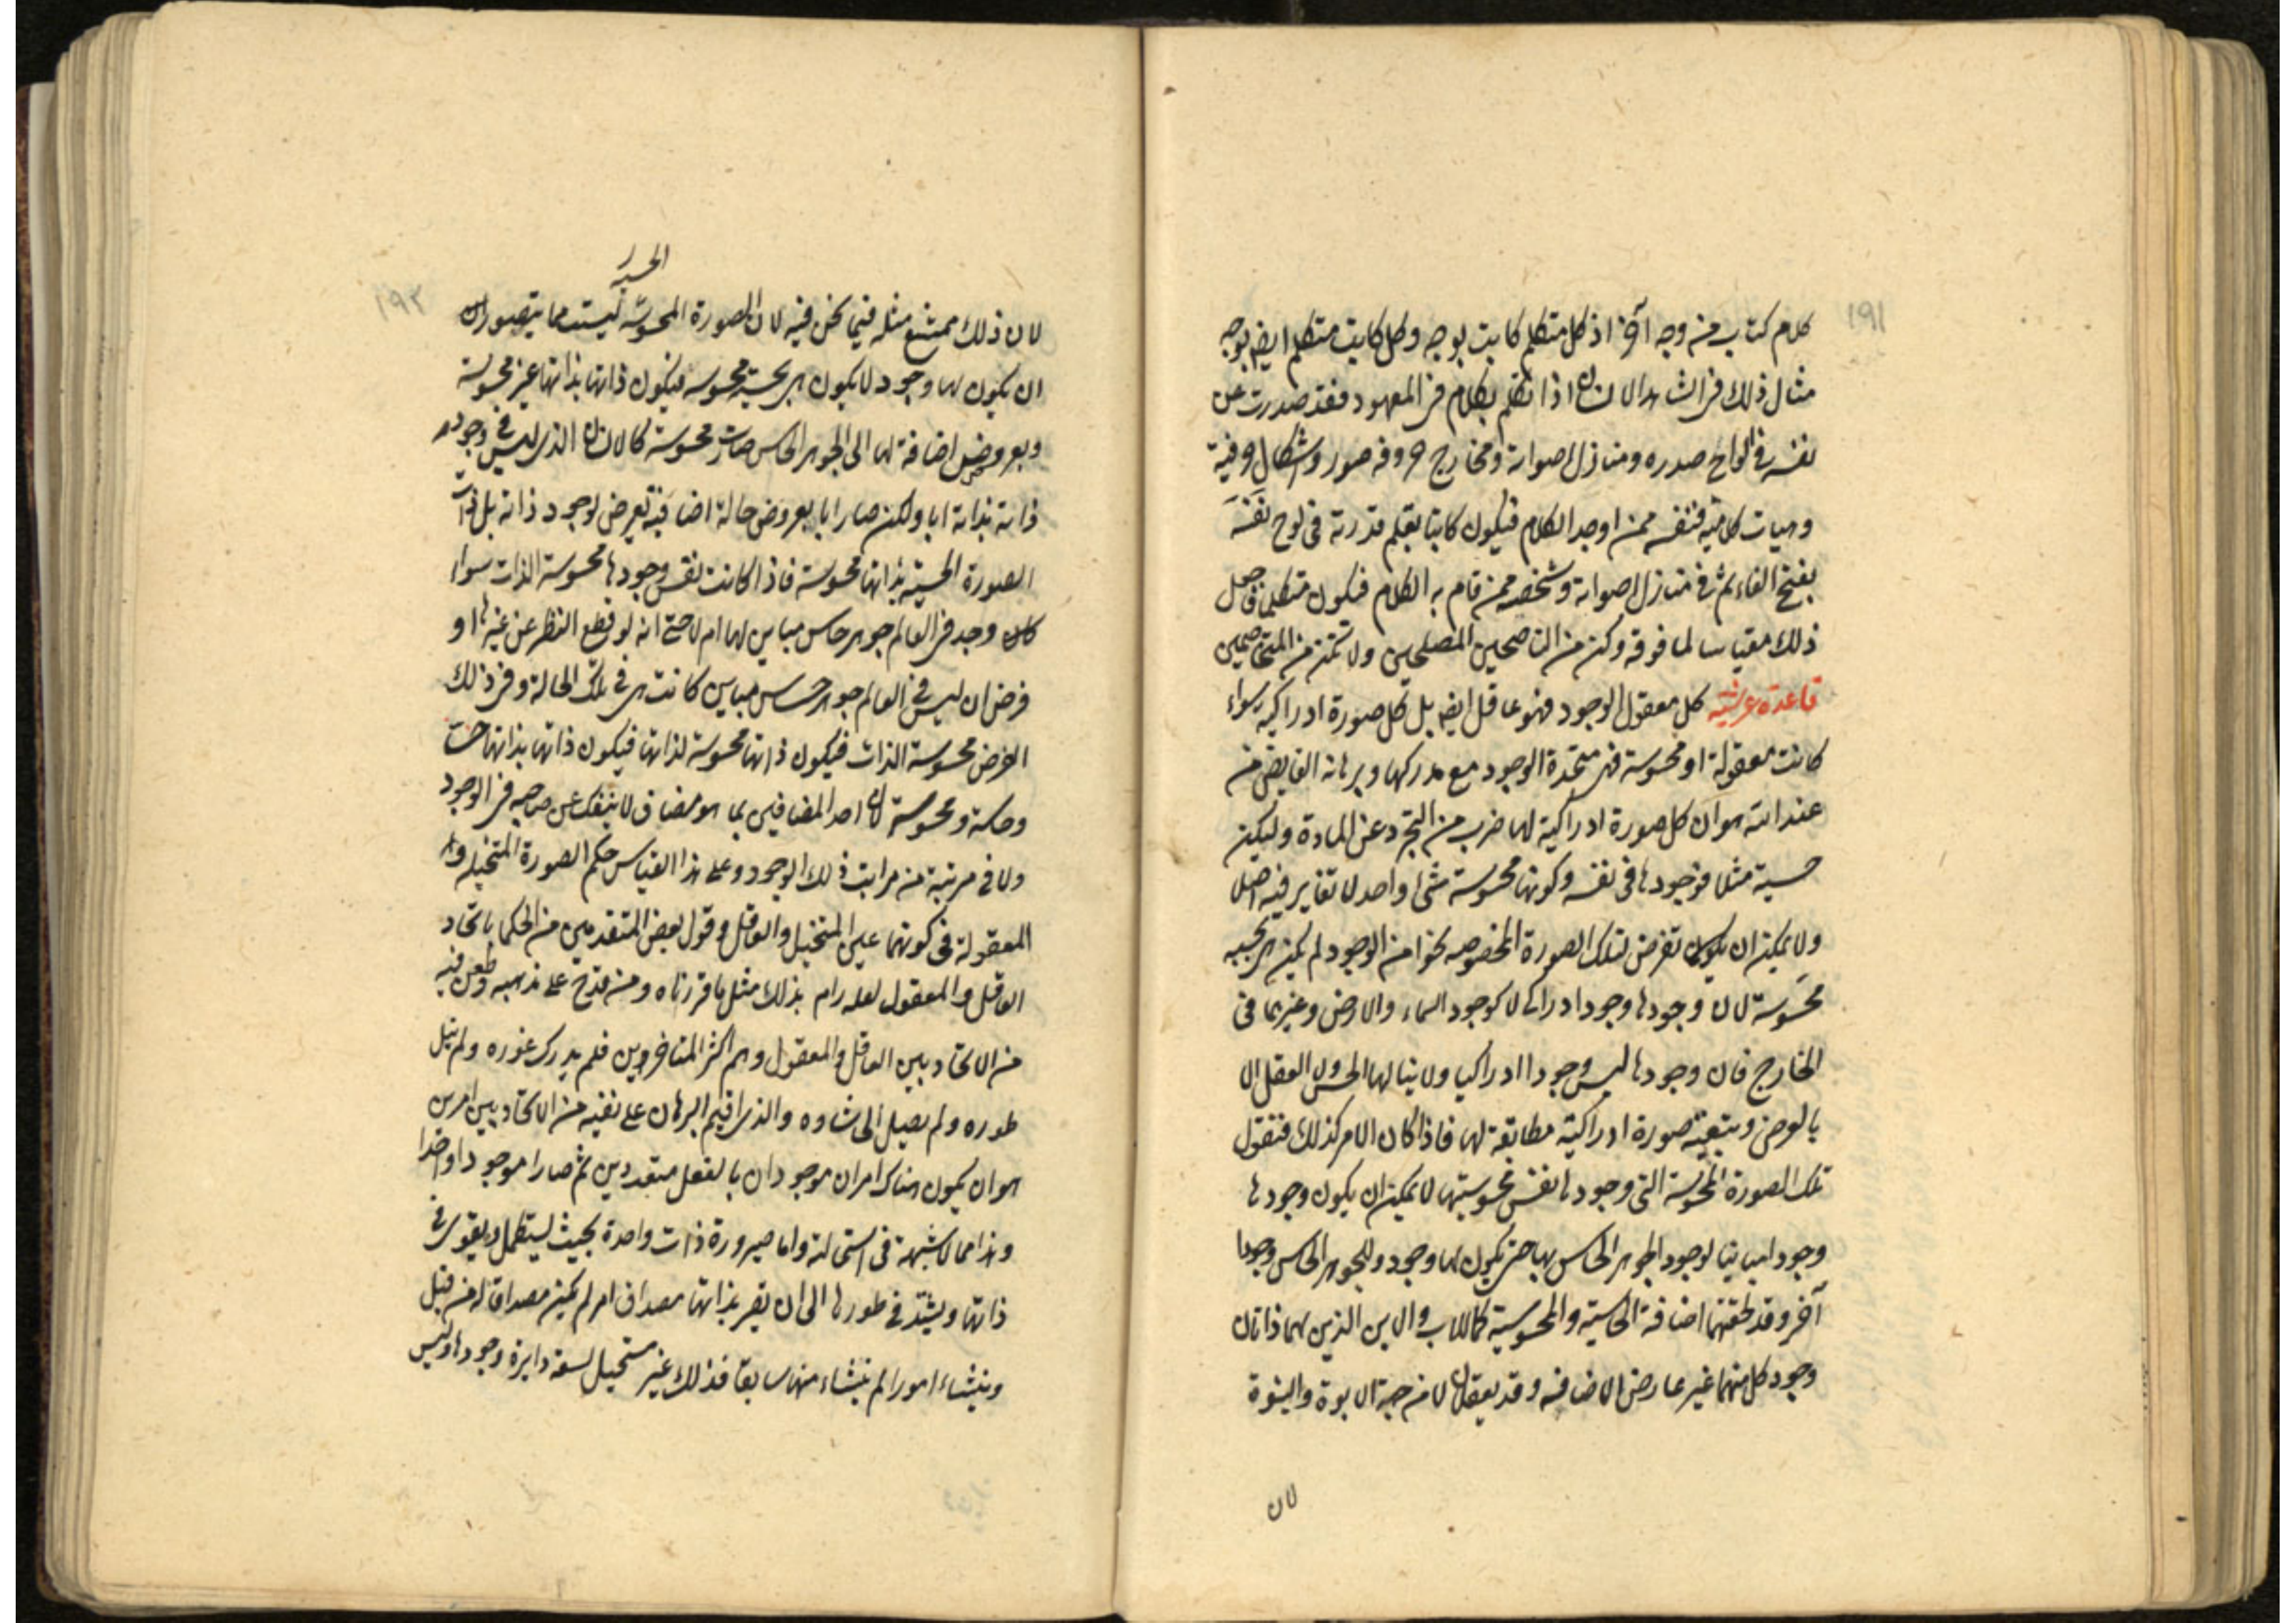 ١٩١
كلام كتاب من وجه آخر اذ كل متكلم كاتب بوجه وكل كاتب متكلم ايض بوجه
مثال ذلك فى الشاهد الانسان اذا تكلم بكلام فى المعهود فقد صدرت عن
نفسه فى الواح صدره ومنازل اصواته ومخارج حروفه صور واشكال حرفية
وهيات كلامية فنفسه ممن اوجد الكلام فيكون كاتبا بقلم قدرته فى لوح نفسه
بفتح الفاء ثم فى منازل اصواته وشخصه ممن قام به الكلام فيكون متكلما فاجعل
ذلك مقياسا لما فوقه وكن من الناصحين المصلحين ولا تكن من المتخاصمين
قاعدة عرشية كل معقول الوجود فهو عاقل ايض بل كل صورة ادراكية سواء
كانت معقولة او محسوسة فهى متحدة الوجود مع مدركها وبرهانه الفايض من
عند الله هو ان كل صورة ادراكية لها ضرب من التجرد عن المادة وليكن
حسية مثلا فوجودها فى نفسه وكونها محسوسة شئ واحد لا تغاير فيه اصلا
ولا يمكن ان يكون تفرض لتلك الصورة المخصوصه نحوا من الوجود لم يكن هى بحسبه
محسوسة لان وجودها وجود ادراكى لا كوجود السماء والارض وغيرهما فى
الخارج فان وجودها ليس وجودا ادراكيا ولا ينالها الحس ولا العقل الا
بالعرض وبتبعية صورة ادراكية مطابقة لها فاذا كان الامر كذلك فنقول
تلك الصورة المحسوسة التى وجودها نفس محسوسيتها لا يمكن ان يكون وجودها
وجودا مباينا لوجود الجوهر الحاس بها حتى يكون لها وجود وللجوهر الحاس وجودا
آخر وقد لحقتهما اضافة الحاسية والمحسوسية كالاب والابن الذين لهما ذاتان
وجود كل منهما غير عارض الاضافه وقد يعقلان لا من جهة الابوة والبنوة
لان
١٩٢
لان ذلك ممتنع مثله فيما نحن فيه لان الصورة المحسوسة ليست مما يتصور ان
ان يكون لها وجود لا يكون هى بحسبه محسوسه فيكون ذاتها بذاتها غير محسوسة
وبعروض اضافة لها الى الجوهر الحاس صارت محسوسة كالانسان الذى ليس فى وجود
ذاته بذاته ابا ولكن صار ابا بعروض حالة اضافية تعرض لوجود ذاته بل ذات
الصورة الحسية بذاتها محسوسة فاذا كانت نفس وجودها محسوسة الذات سواء
كان وجد فى العالم جوهر حاس مباين لها ام لا حتى انه لو قطع النظر عن غيرها او
فرض ان ليس فى العالم جوهر حساس مباين كانت هى فى تلك الحالة وفى ذلك
الفرض محسوسة الذات فيكون ذاتها محسوسة لذاتها فيكون ذاتها بذاتها حسا
وحاسة ومحسوسة لان احد المضافين بما هو مضاف لا ينفك عن صاحبه فى الوجود
ولا فى مرتبة من مراتب ذلك الوجود وعلى هذا القياس حكم الصورة المتخيله و
المعقولة فى كونهما عين المتخيل والعاقل وقول بعض المتقدمين من الحكما باتحاد
العاقل والمعقول لعله رام بذلك مثل ما قررناه ومن قدح على مذهبه وطعن فيه
من الاتحاد بين العاقل والمعقول وهم اكثر المتاخرين فلم يدرك غوره ولم ينل
طوره ولم يصل الى شاوه والذى اقيم البرهان على نفيه من الاتحاد بين امرين
هو ان يكون هناك امران موجودان بالفعل متعددين ثم صارا موجودا واحدا
وهذا مما لا شبهة فى استحالته واما صيرورة ذات واحدة بحيث يستكمل ويقوى فى
ذاتها ويشتد فى طورها الى ان تصير بذاتها مصداق امر لم يكن مصداقا له من قبل
وينشاء امورا لم ينشاء منها سابقا فذلك غير مستحيل لسعة دايرة وجودها وليس